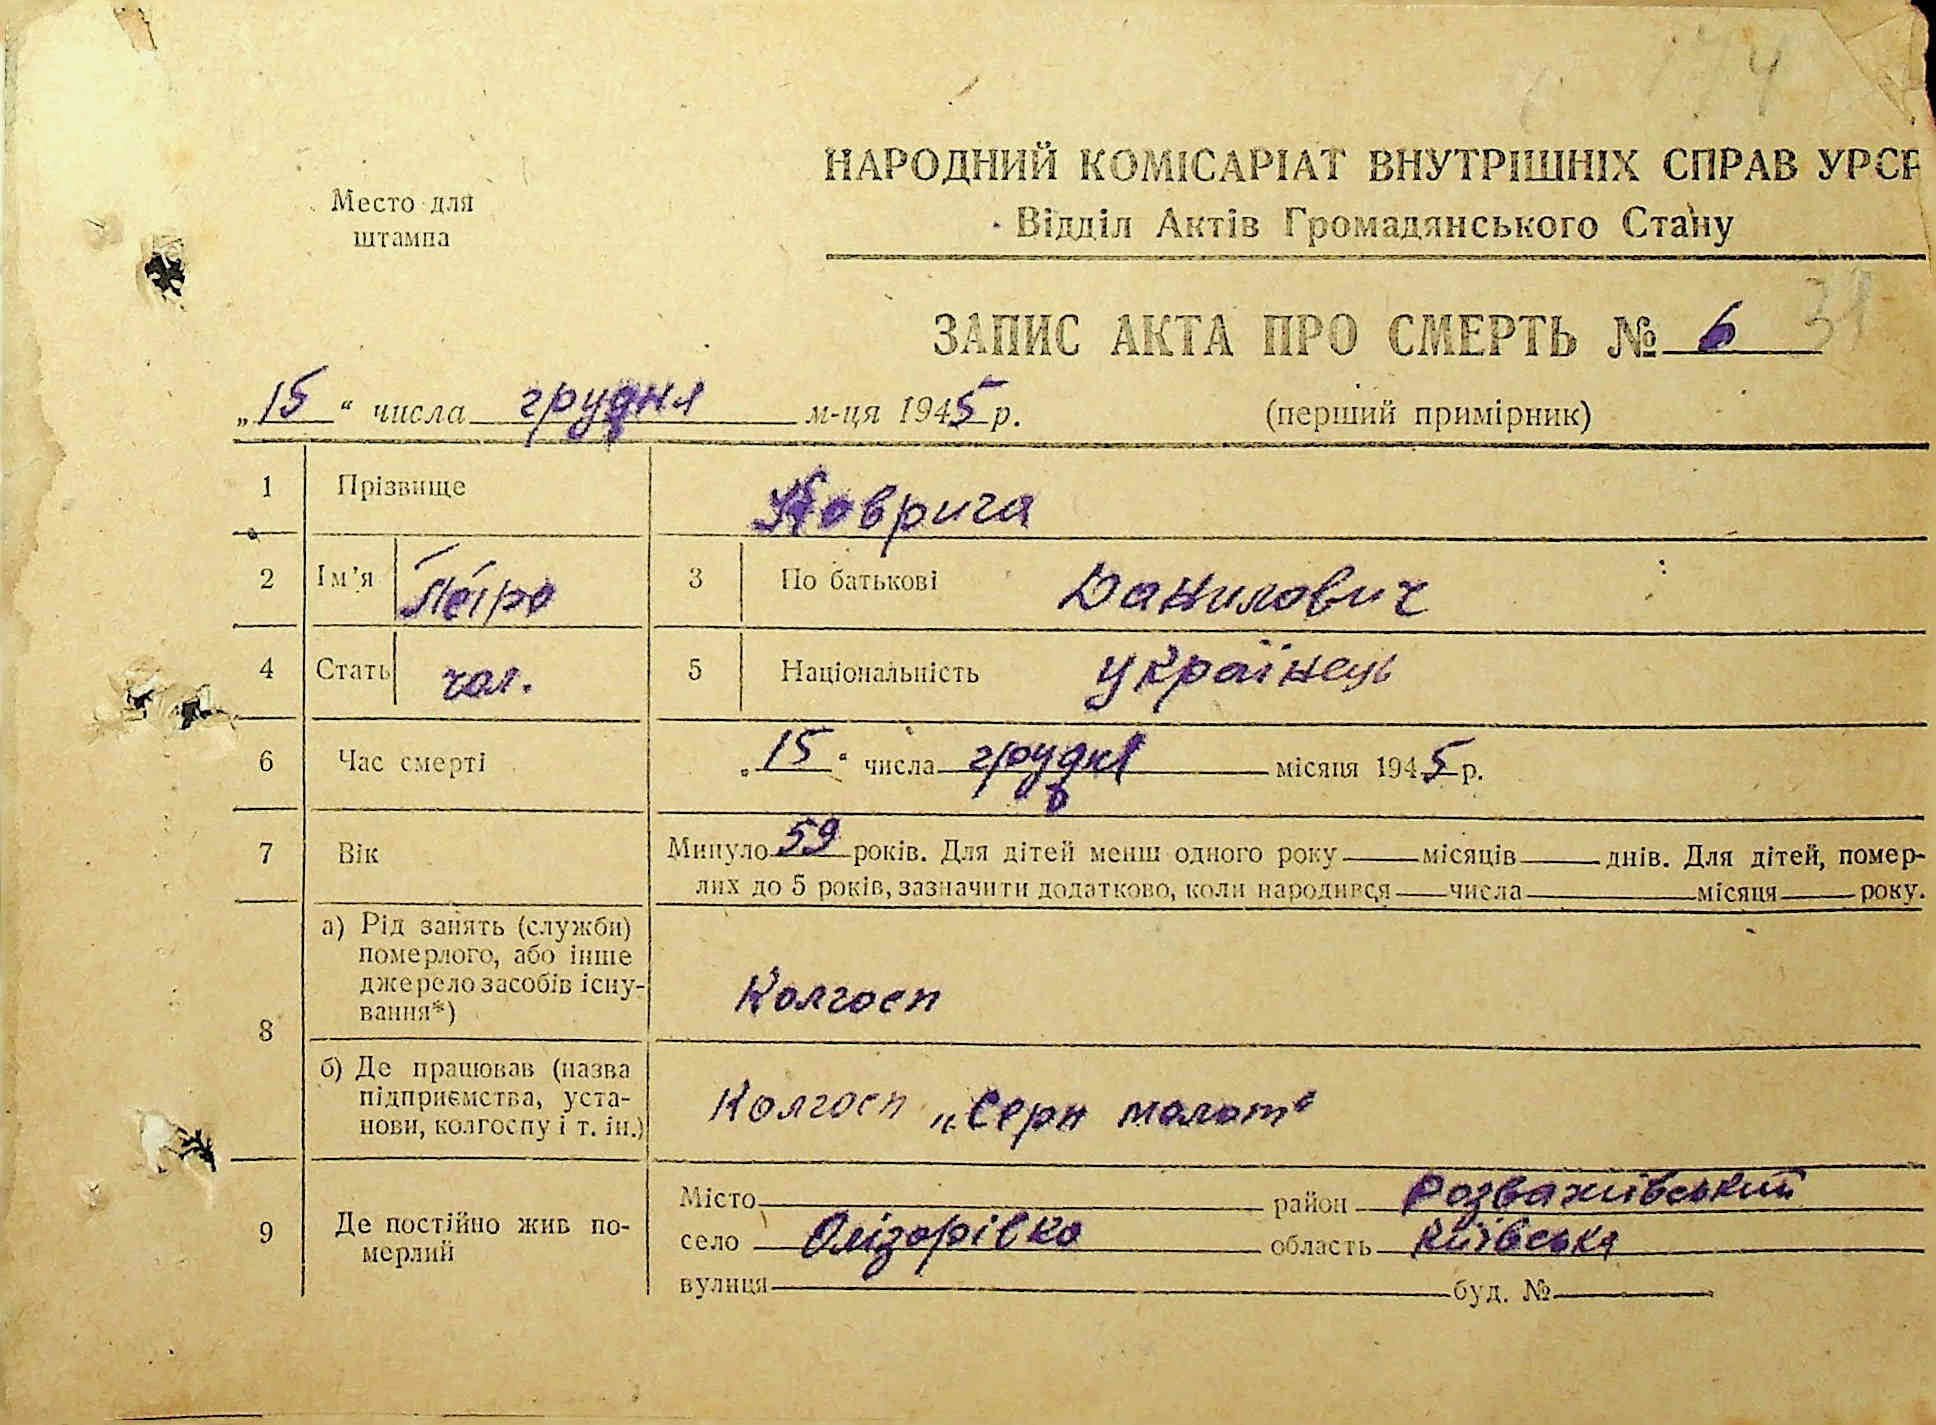 74
НАРОДНИЙ КОМІСАРІАТ ВНУТРІШНІХ СПРАВ УРСР
Место для штампа
Відділ Актів Громадянського Стану
ЗАПИС АКТА ПРО СМЕРТЬ № 6 31
„15“ числа грудня м-ця 1945 р. (перший примірник)
1 Прізвище Коврига
2 Ім’я Петро 3 По батькові Данилович
4 Стать чол. 5 Національність українець
6 Час смерті „15“ числа грудня місяця 1945 р.
7 Вік Минуло 59 років. Для дітей менш одного року місяців днів. Для дітей, помер-
лих до 5 років, зазначити додатково, коли народився числа місяця року.
8 а) Рід занять (служби)
померлого, або інше
джерело засобів існу-
вання*) Колгосп
б) Де працював (назва
підприємства, уста-
нови, колгоспу і т. ін.) Колгосп „Серп молот“
9 Де постійно жив по-
мерлий
Місто район Розважівський
село Олізарівка область Київська
вулиця буд. №